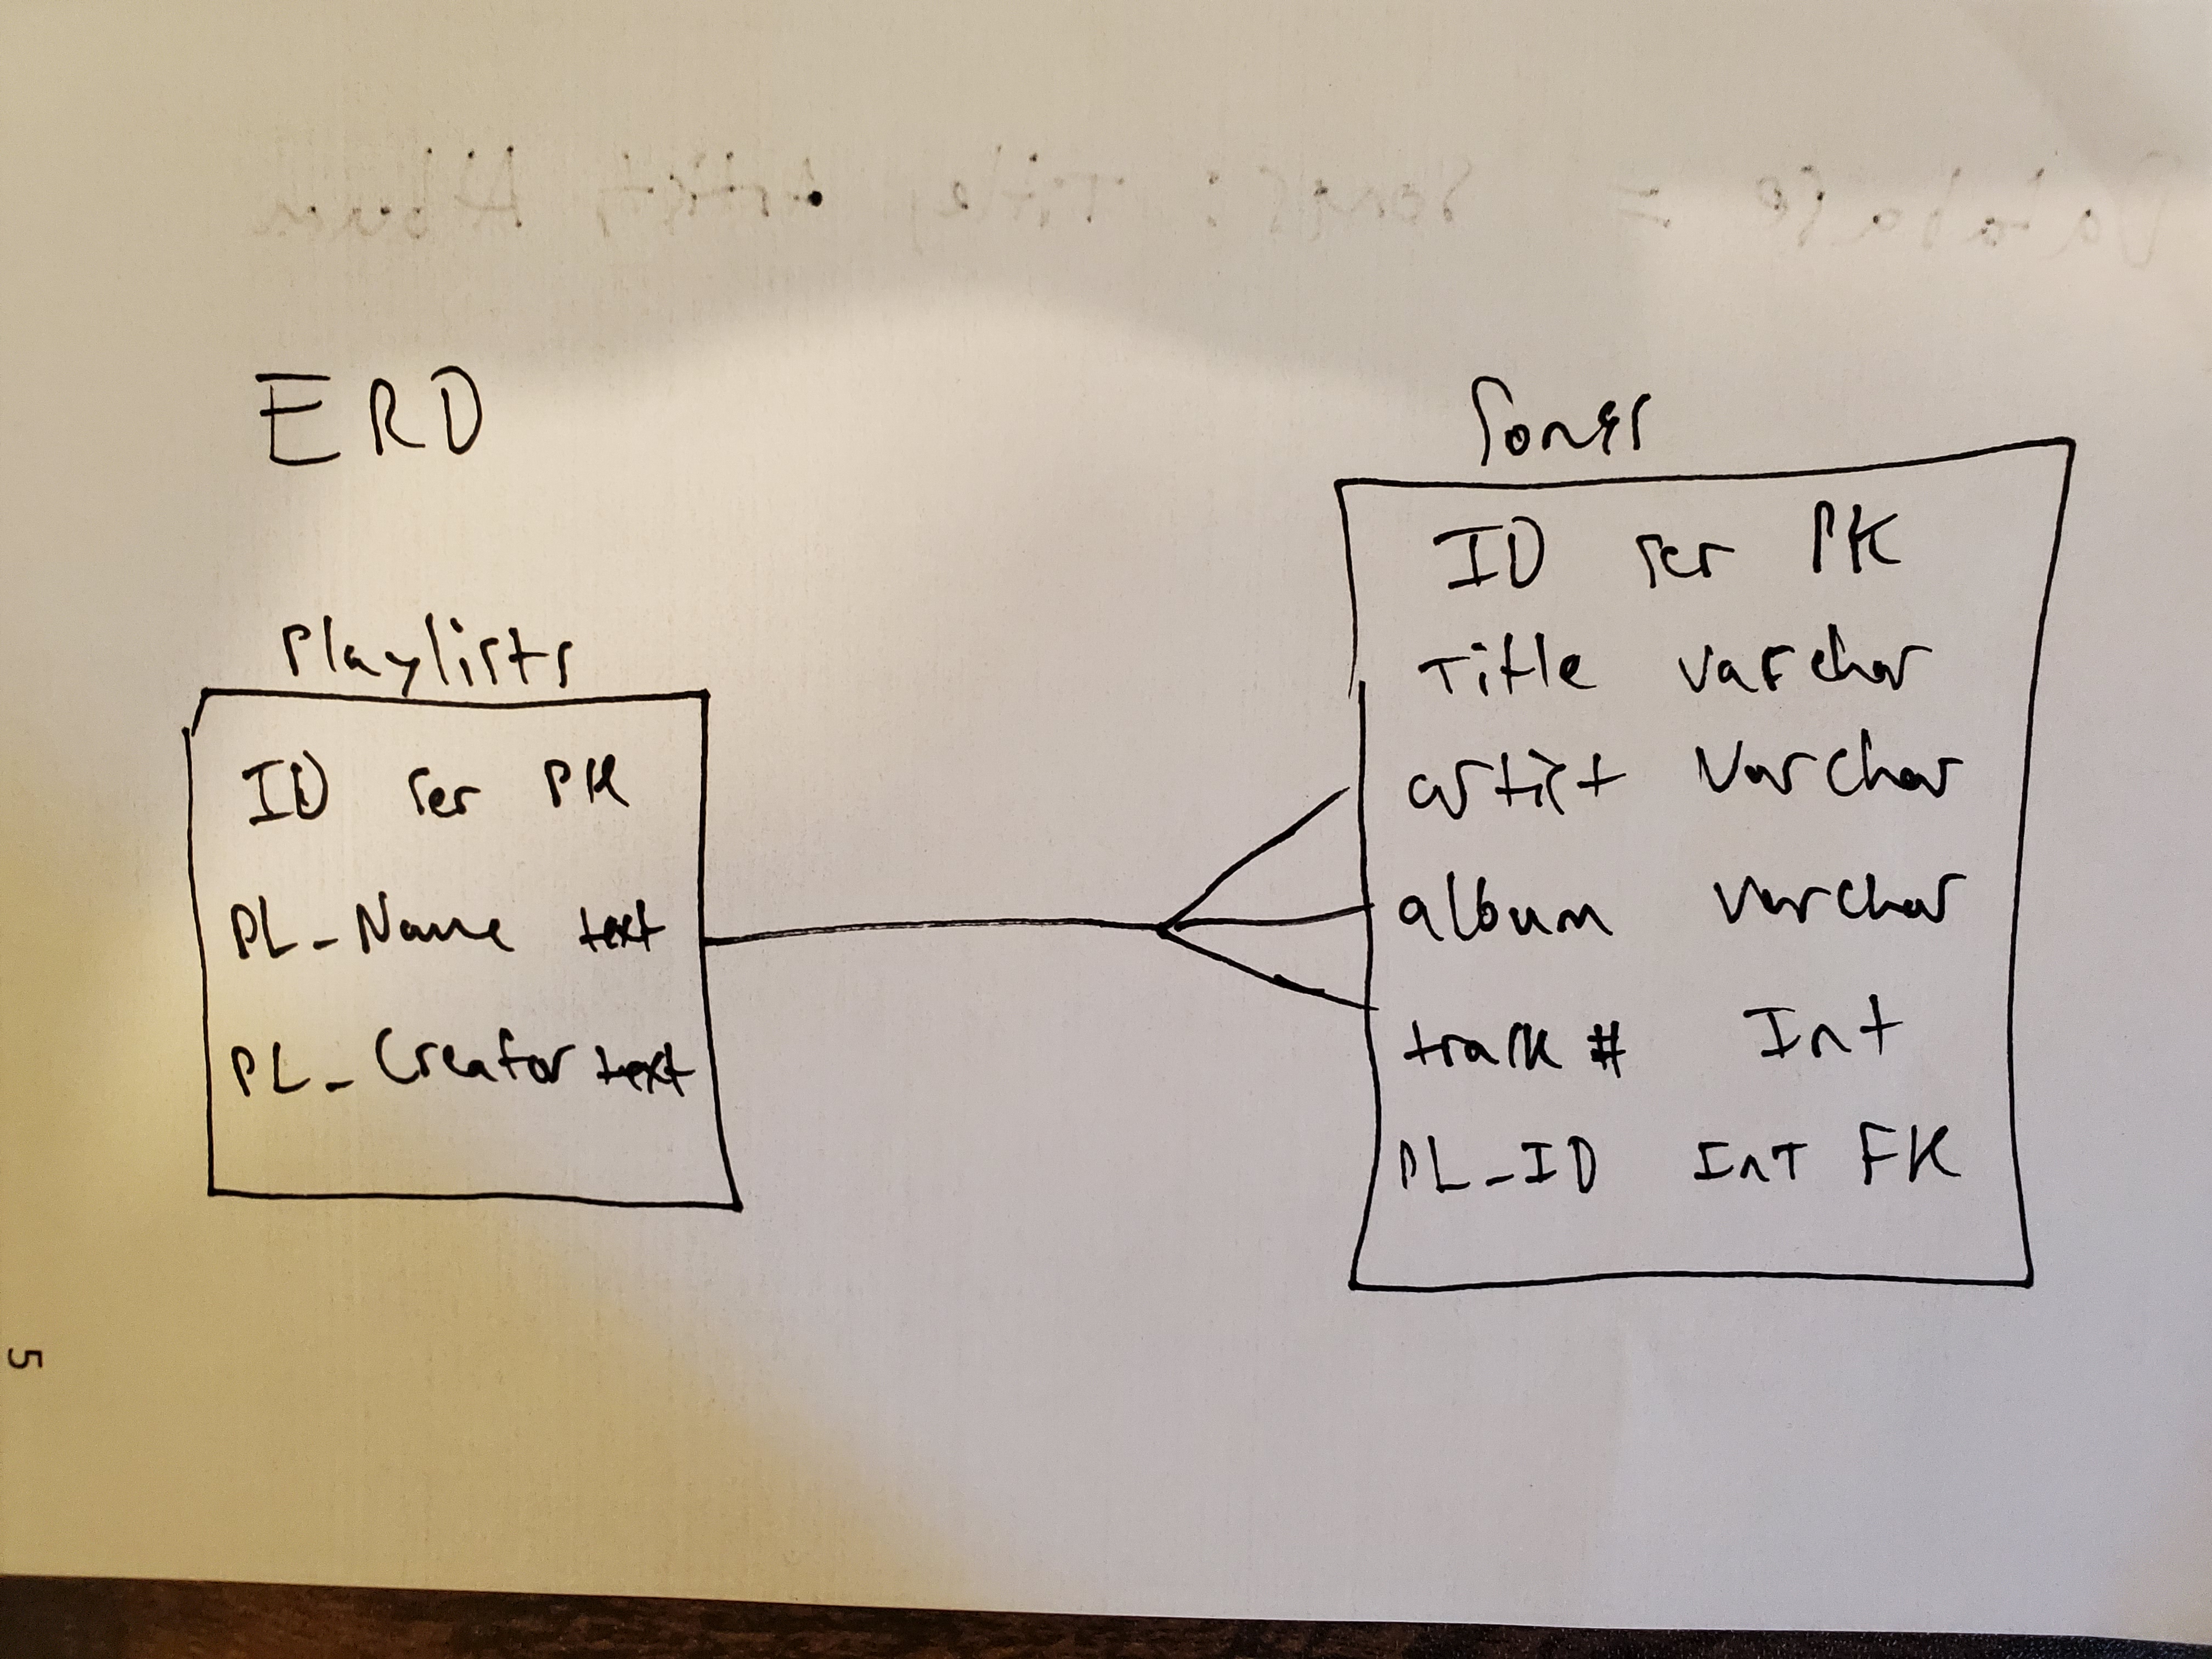 ERD
Playlists
ID Ser PK
PL_Name text
PL_Creator text
Songs
ID Ser PK
Title Varchar
artist Varchar
album Varchar
track # Int
PL_ID Int FK
5